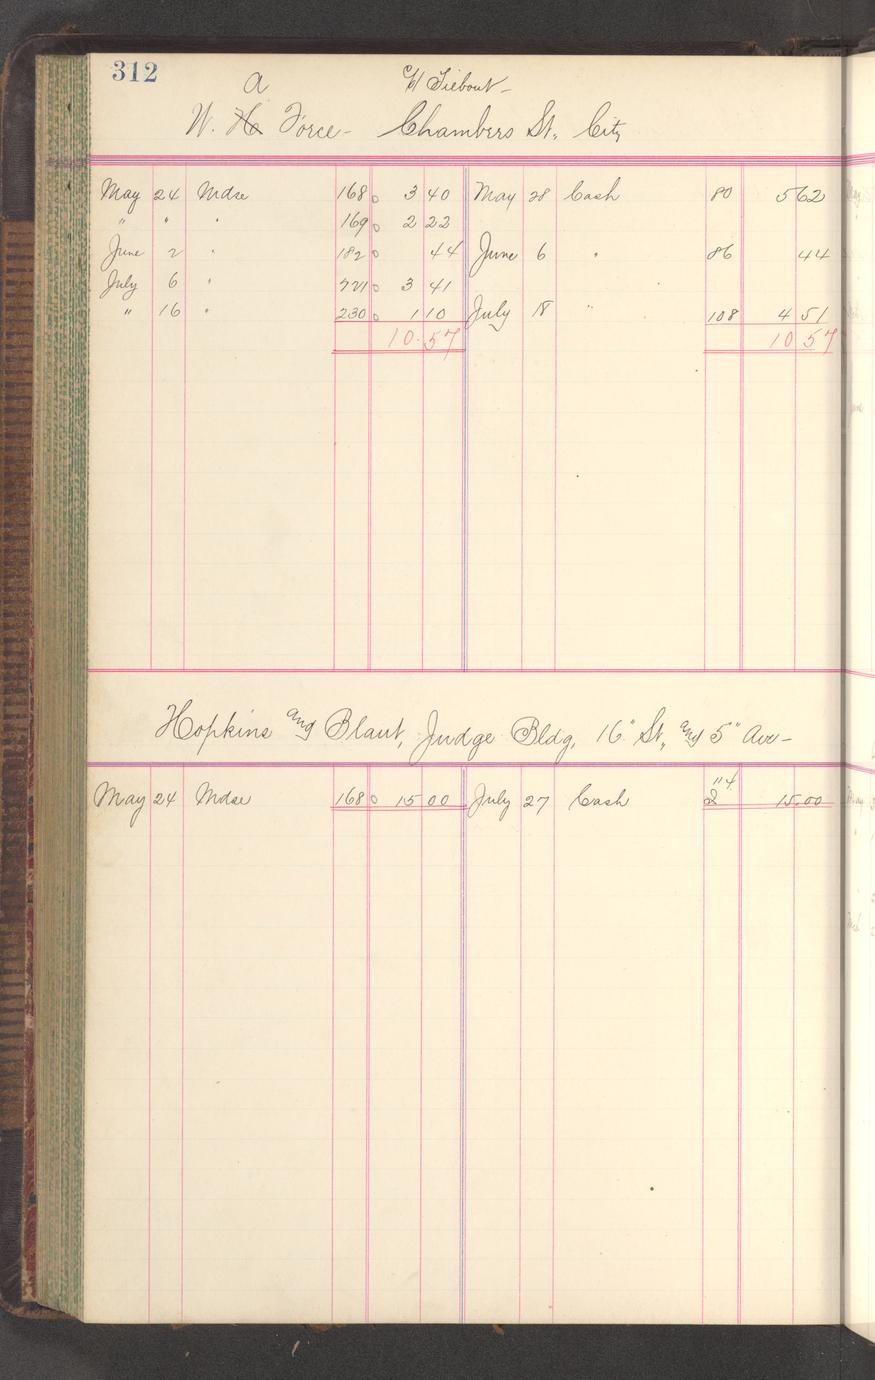 312
A c/o Tiebout -
W. H Force - Chambers St. City
May 24 Mdse 168 3 40 May 28 Cash 80 5 62
" " " 169 2 22
June 2 " 182 44 June 6 " 86 44
July 6 " 221 3 41
" 16 " 230 1 10 July 18 " 108 4 51
10.57 10 57
Hopkins and Blaut, Judge Bldg, 16" St., and 5" Ave -
114
May 24 Mdse 168 15 00 July 27 Cash 15.00